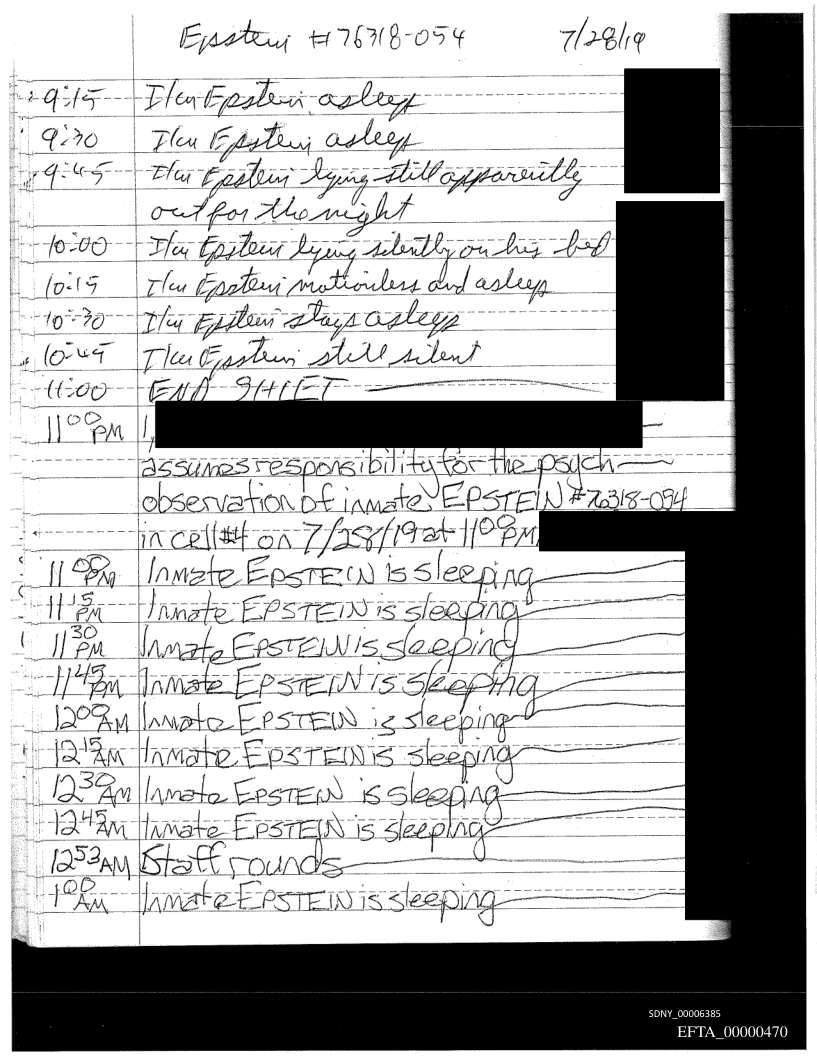 Epstein #76318-054 7/28/19
9:15 I/m Epstein asleep
9:30 I/m Epstein asleep
9:45 I/m Epstein lying still apparently
out for the night
10:00 I/m Epstein lying silently on his bed
10:15 I/m Epstein motionless and asleep
10:30 I/m Epstein stays asleep
10:45 I/m Epstein still silent
11:00 END SHIFT
11:00 PM I,
assumes responsibility for the psych
observation of inmate EPSTEIN #76318-054
in cell #4 on 7/28/19 at 11:00 PM
11:00 PM Inmate EPSTEIN is sleeping
11:15 PM Inmate EPSTEIN is sleeping
11:30 PM Inmate EPSTEIN is sleeping
11:45 PM Inmate EPSTEIN is sleeping
12:00 AM Inmate EPSTEIN is sleeping
12:15 AM Inmate EPSTEIN is sleeping
12:30 AM Inmate EPSTEIN is sleeping
12:45 AM Inmate EPSTEIN is sleeping
12:53 AM Staff rounds
1:00 AM Inmate EPSTEIN is sleeping
SDNY_00006385
EFTA_00000470